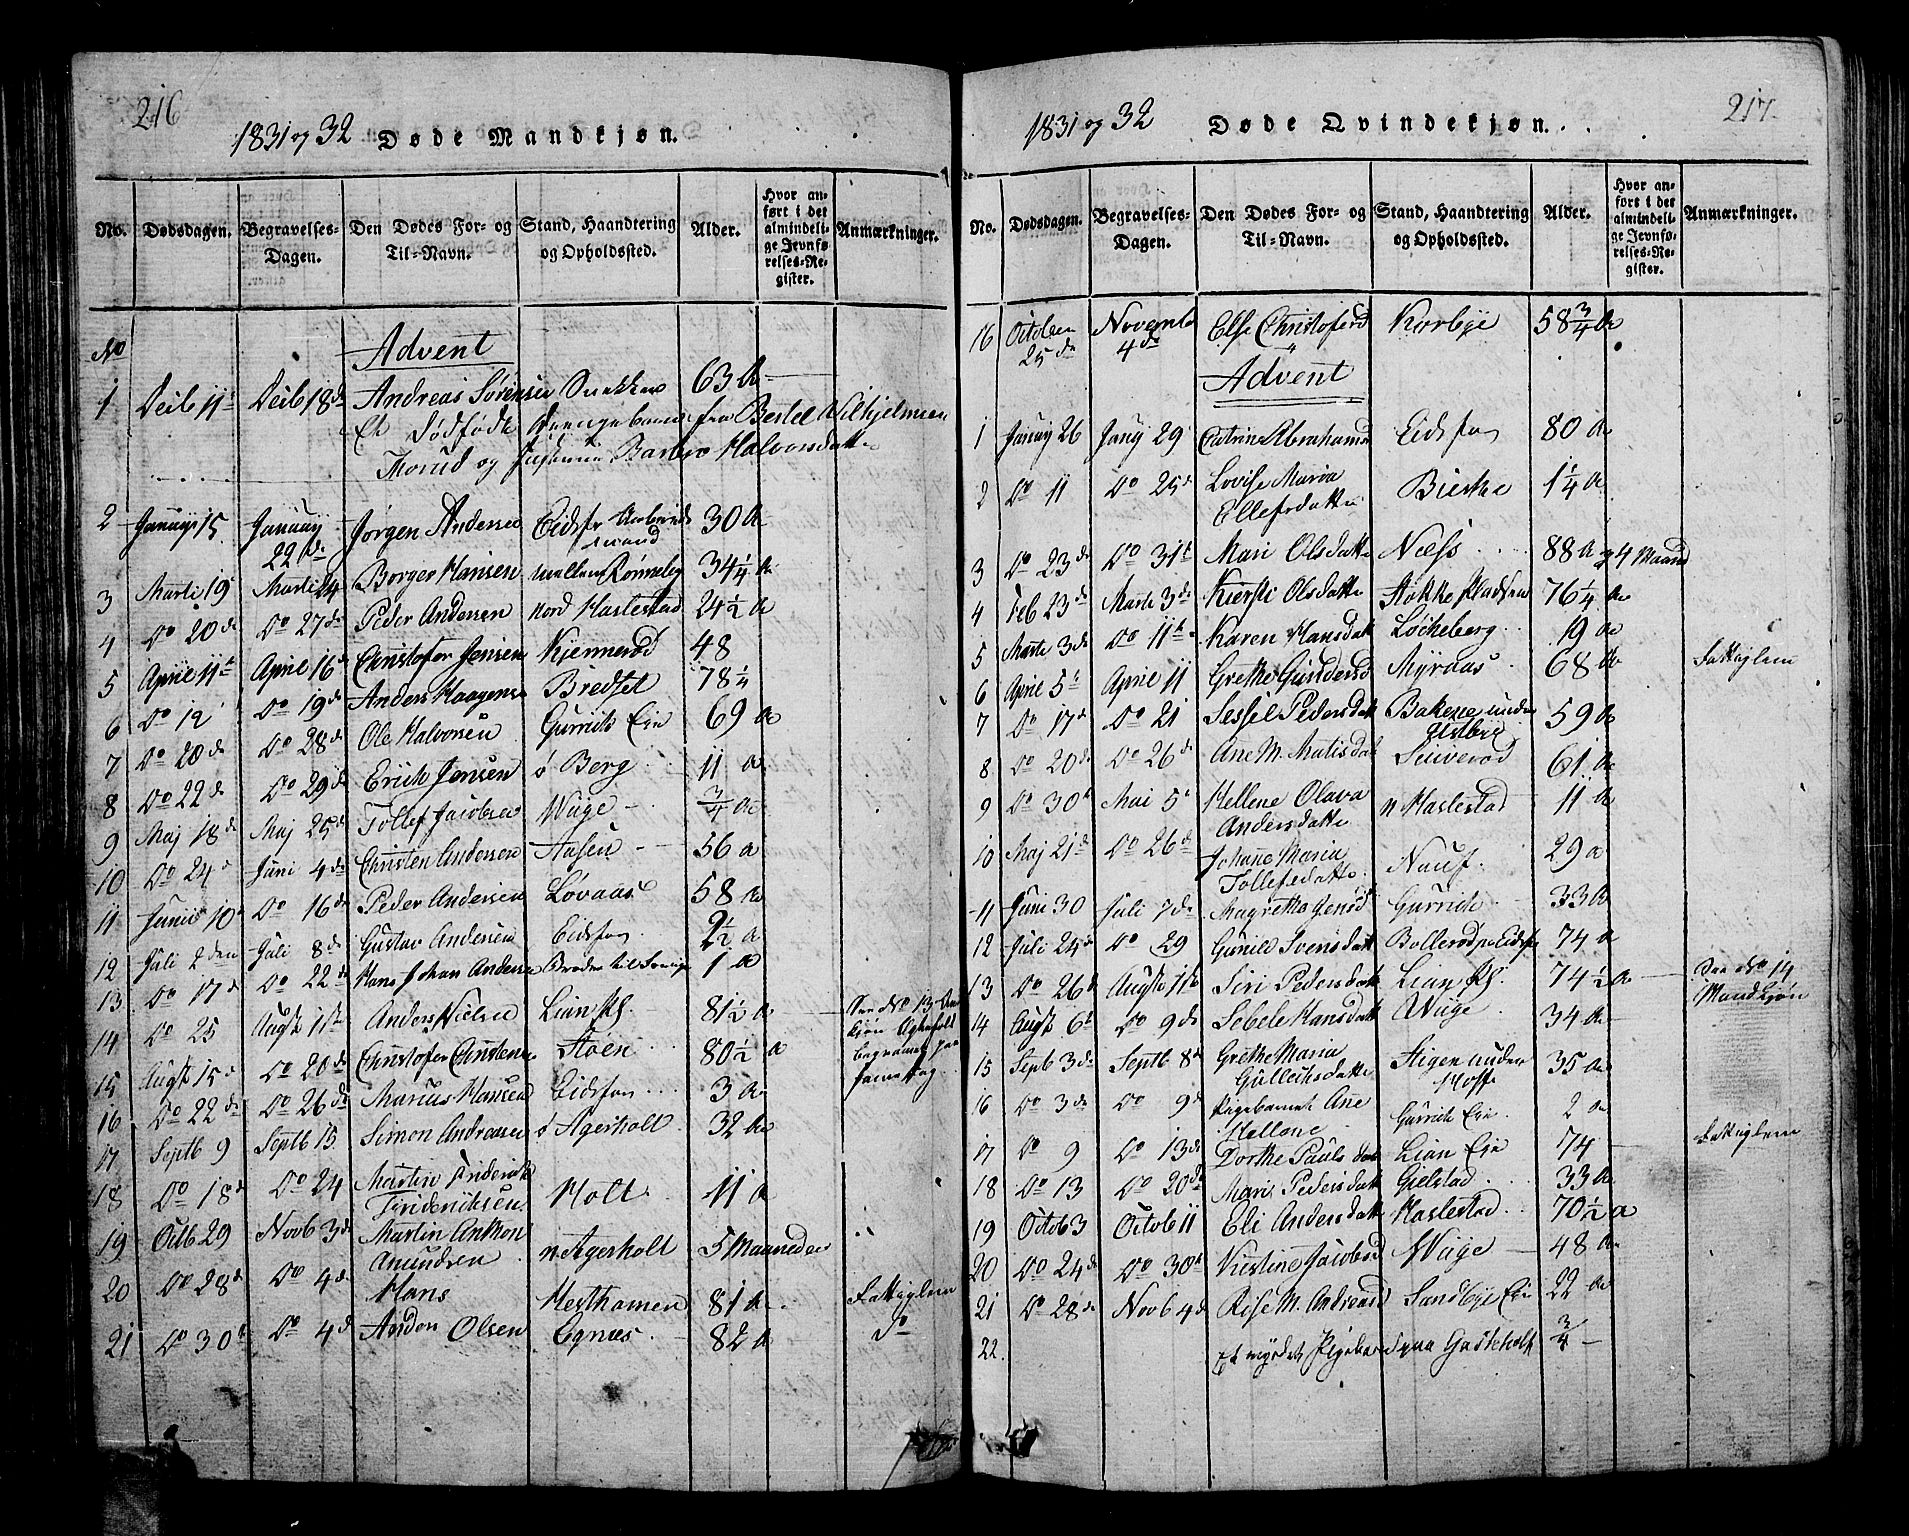 216
1831 og 32 Døde Mandkjøn.
No. Dødsdagen. Begravelses-Dagen. Den Dødes For- og Til-Navn. Stand, Haandtering og Opholdssted. Alder. Hvor anført i det almindelige Jevnførelses-Register. Anmærkninger.
No Advent
1 Decb 11 Decb 18de Andreas Sørensen Snekker 63 A
Et Dødfødt Drengebarn fra Bertel Wilhjelmsen
Morud og Barbro Halvorsdatter
2 Januay 15 Januay 22de Jørgen Andersen Eidsfos 30 A
3 Marti 19 Marti 24 Borger Hansen mellem Rønneberg 34 1/4 A
4 Do 20de Do 27de Peder Andersen nord Haslestad 24 1/2 A
5 April 11te April 16 Christofer Jensen Kjennerød 48
6 Do 12 Do 19de Anders Haagensen Bredset 78 1/4
7 Do 20de Do 28de Ole Halvorsen Gurrik Eje 69 A
8 Do 22de Do 29de Erich Jensen ø Berg 11 A
9 Maj 18de Maj 25de Tollef Jacobsen Wiige 3/4 A
10 Do 24de Juni 4de Christen Andersen Aasen 56 A
11 Junii 10 Do 16de Peder Andersen Løvaas 58 A
12 Juli 2den Juli 8de Gustav Andersen Eidsfos 2 1/2 A
13 Do 17de Do 22de Hans Johan Andersen Broder til 1 A
14 Do 25 Augst 11te Anders Nielsen Lian 81 1/2 A See No 13
15 Augst 15de Do 20de Christofer Christensen Stoen 80 1/2 A
16 Do 22de Do 26de Marius Hansen Eidsfos 3 A
17 Septb 9 Septb 15 Simon Andreasen ø Agerholt 32 A
18 Do 18de Do 24 Martin Friderik Frideriksen Holt 11 A
19 Octb 29 Novb 3de Martin Anthon Amundsen n Agerholt 5 Maaneder
20 Do 28de Do 4de Hans Hesthamen 81 A Fattiglem
21 Do 30te Do 4de Anders Olsen 82 A Do
217
1831 og 32 Døde Qvindekjøn.
No. Dødsdagen. Begravelses-Dagen. Den Dødes For- og Til-Navn. Stand, Haandtering og Opholdssted. Alder. Hvor anført i det almindelige Jevnførelses-Register. Anmærkninger.
16 October 25de Novemb 4de Else Christofersd Korbye 58 3/4 A
Advent
1 Januay 26 Januy 29 Catrine Abrahamsd Eidsfos 80 A
2 Do 11 Do 25de Lovise Maria Ellefsdatter Bierke 1 1/4 A
3 Do 23de Do 31te Mari Olsdatte Næss 88 A 4 Maand
4 Feb 23de Marts 3de Kiersti Olsdatte Stokke Pladsen 76 1/4 A
5 Marts 3de Do 11te Karen Hansdatt Løcheberg 19 A
6 April 5te April 11 Grethe Gundersd Myraas 68 A Fattiglem
7 Do 17de Do 21 Sessel Pedersdatt Bakene under 59 A
8 Do 20de Do 26de Ane M. Matisdatt 61 A
9 Do 30te Mai 5te Hellene Olava Andersdatte n Haslestad 11 A
10 Maj 21de Do 26de Johanne Maria Tollefsdatte Nauf 29 A
11 Juni 30 Juli 7de Magrethe Jensd Gurrik 33 A
12 Juli 24de Do 29 Gunild Iversdatt Bollerød 74 A
13 Do 26de Augst 11te Siri Pedersdatt Lian 74 1/2 A See No 14 Mandkjøn
14 Augst 6te Do 9de Sebele Hansdatt Wiige 34 A
15 Septb 3de Septb 8de Grethe Maria Gullichsdatte Stigen under Hoffs 35 A
16 Do 3de Do 9de Pigebarnet Ane Hellene Gurrik Eje 2 A
17 Do 9 Do 13de Dorthe Pauls datt Lian Eje 74 Fattiglem
18 Do 13 Do 20de Maris Pedersdatt Gielstad 33 A
19 Octob 3 Octob 11 Eli Andersdatt Haslestad 70 1/2 A
20 Do 24de Do 30te Kirstine Jacobsd Wiige 48 A
21 Do 28de Novb 4de Rise M. Andreasd Sandbye Eje 22 A
22 Et myrdet Pigebarn paa Gaskholt 3/4